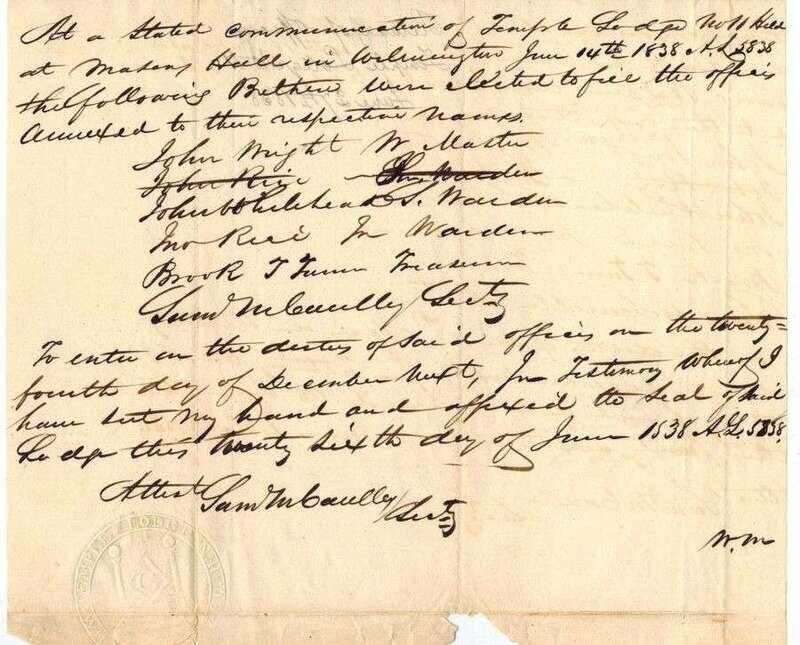 At a Stated communication of Temple Lodge No 11 Held
at Masons Hall in Wilmington June 14th 1838 A.L. 5838
the following Brethern were elected to fill the offices
annexed to their respective names.
John Wright W Master
John Rice Jr Warden
John Whitehead S. Warden
Jno Rice Jr Warden
Brook T Turner Treasurer
Saml McCaulley Secty
To enter on the duties of said offices on the twenty=
fourth day of December next, In Testimony Whereof I
have set my hand and affixed the Seal of said
Lodge this twenty Sixth day of June 1838 A.L. 5838.
Attest Saml McCaulley
Secty
W.M